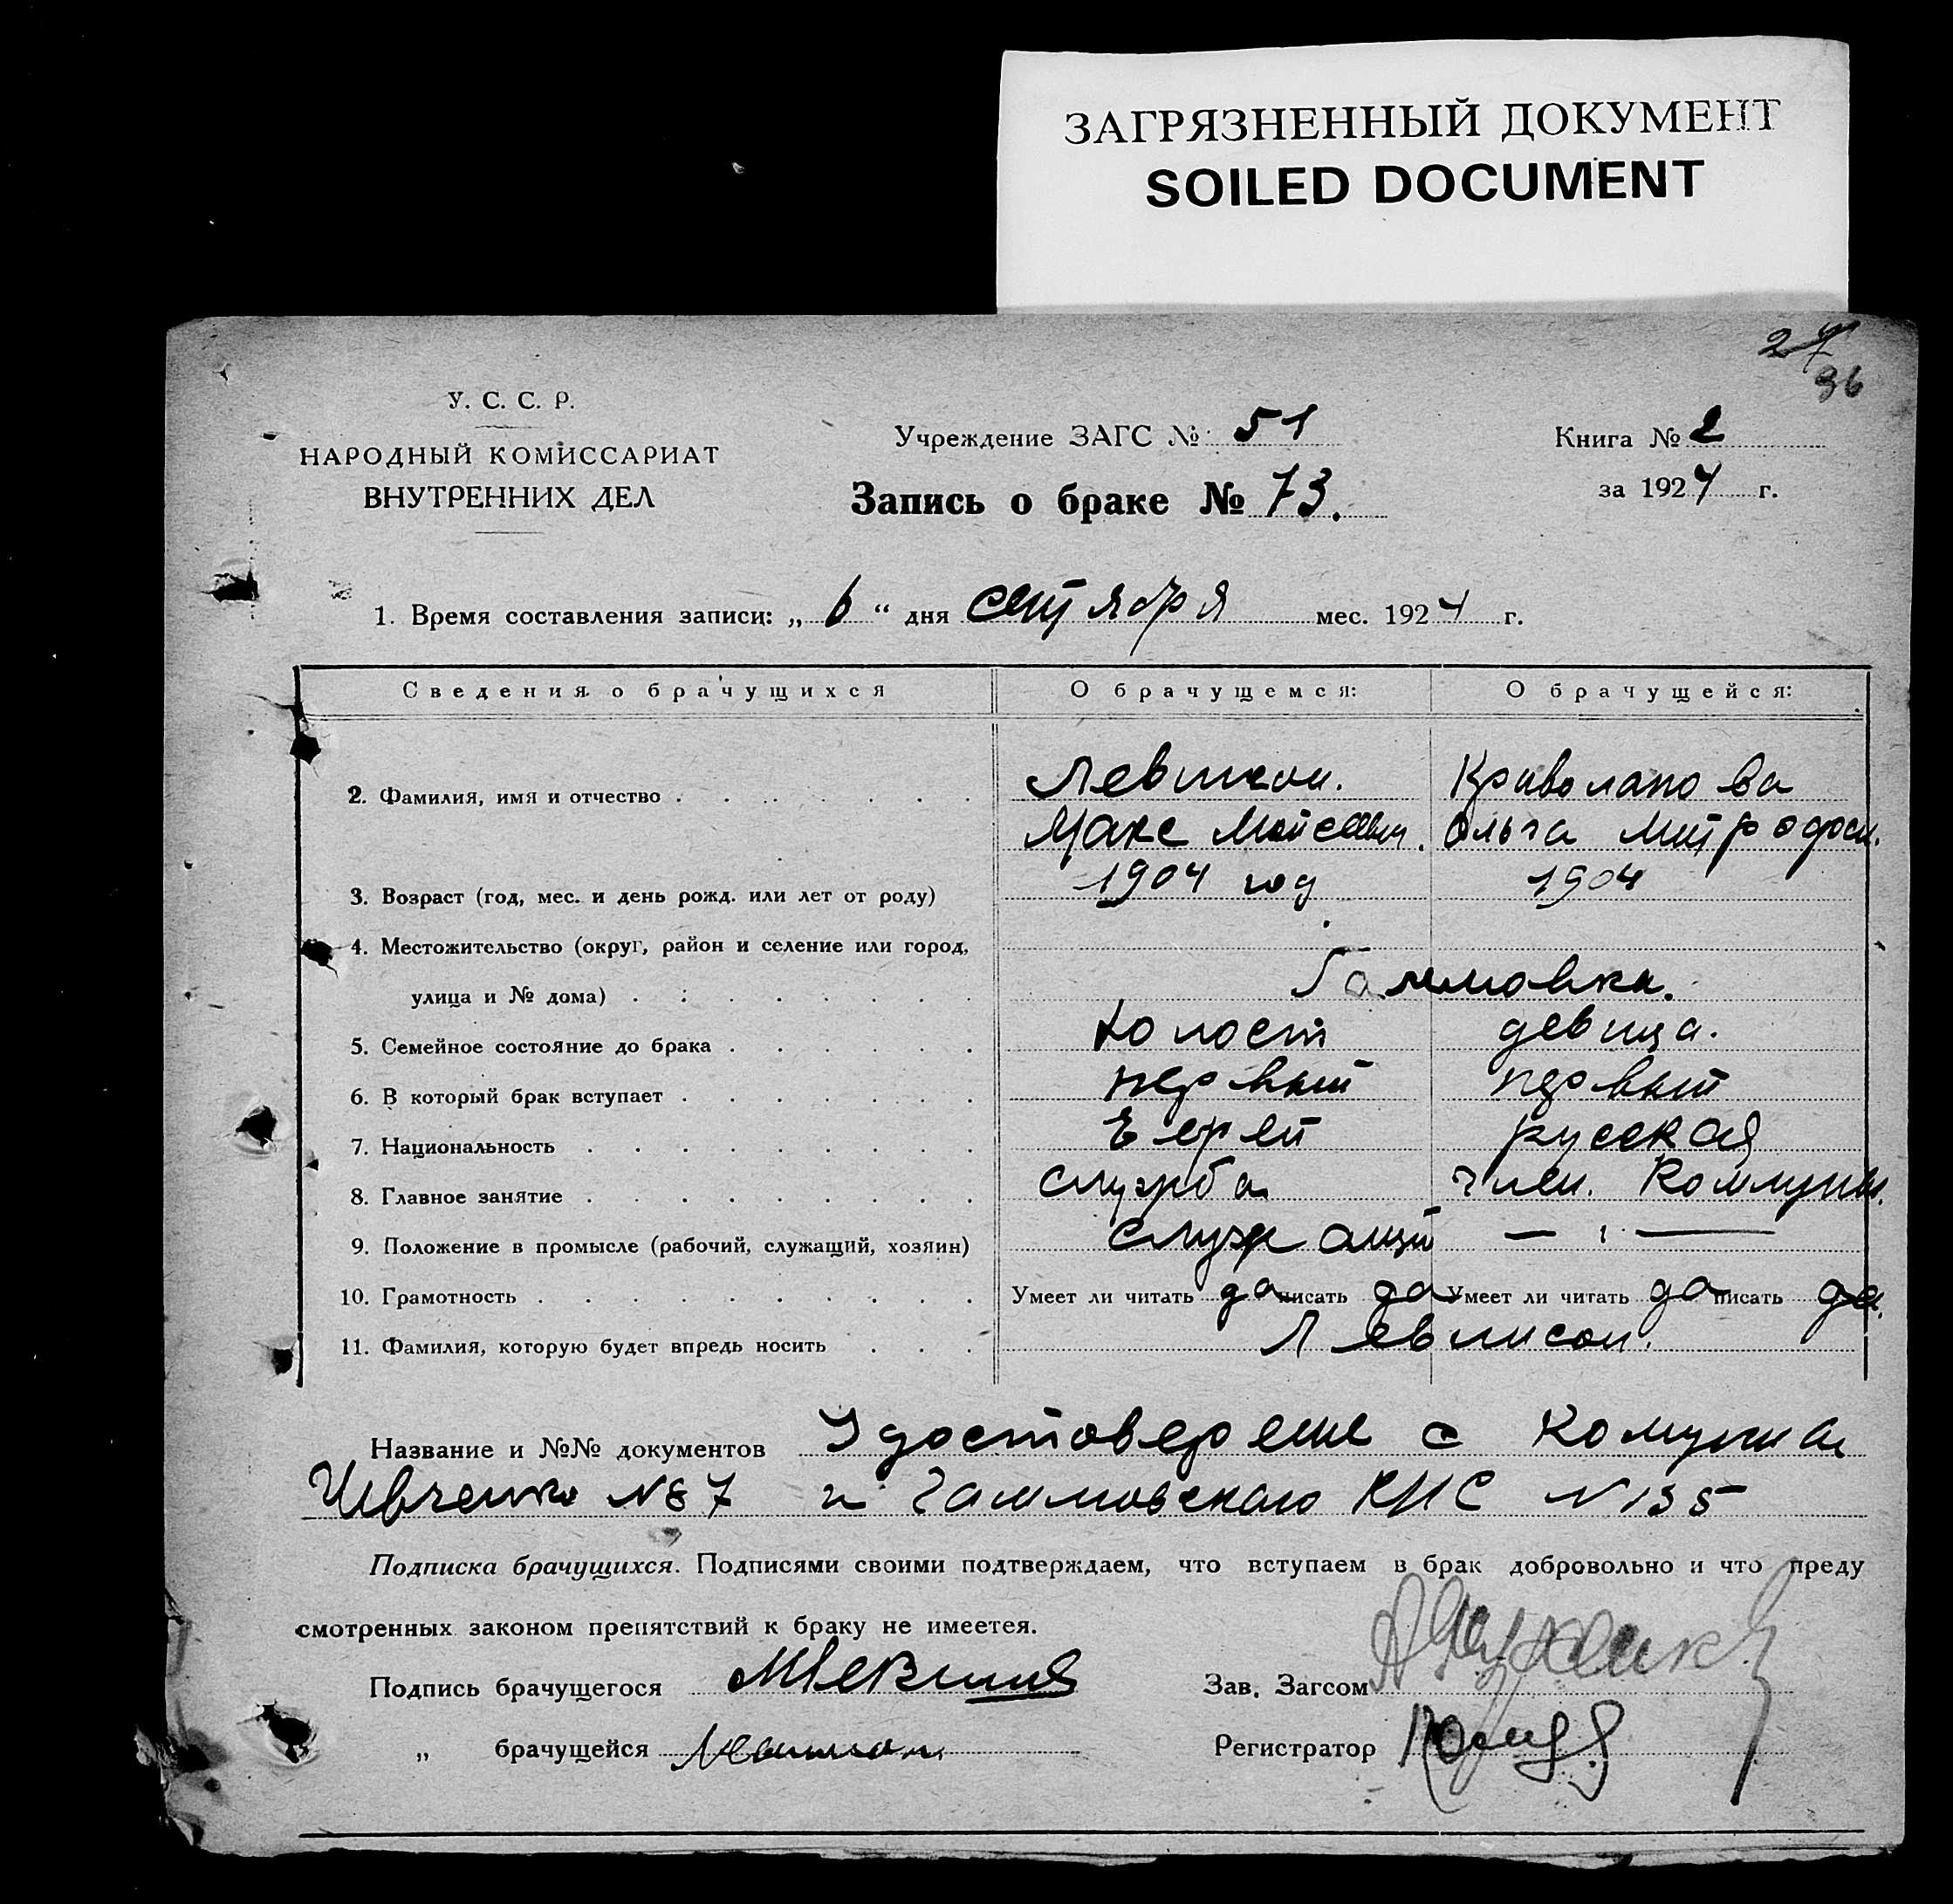 ЗАГРЯЗНЕННЫЙ ДОКУМЕНТ
SOILED DOCUMENT
24
36
У. С. С. Р.
НАРОДНЫЙ КОМИССАРИАТ
ВНУТРЕННИХ ДЕЛ
Учреждение ЗАГС № 51
Книга № 2
Запись о браке № 73.
за 1924 г.
1. Время составления записи: „ 6 “ дня сентября мес. 1924 г.
Сведения о брачущихся О брачущемся: О брачущейся:
2. Фамилия, имя и отчество Левинсон. Криволапова
Макс Мойсеевич. Ольга Митрофан.
3. Возраст (год, мес. и день рожд. или лет от роду) 1904 год 1904
4. Местожительство (округ, район и селение или город,
улица и № дома) Гаммовка.
5. Семейное состояние до брака холост девица.
6. В который брак вступает первый первый
7. Национальность Еврей русская
8. Главное занятие служба член. Коммуны.
9. Положение в промысле (рабочий, служащий, хозяин) служащий — : —
10. Грамотность Умеет ли читать да писать да Умеет ли читать да писать да.
11. Фамилия, которую будет впредь носить Левинсон.
Название и №№ документов Удостоверение с Комунии
Шевченко № 87 и Гаммовского КНС N 135
Подписка брачущихся. Подписями своими подтверждаем, что вступаем в брак добровольно и что преду
смотренных законом препятствий к браку не имеется.
Подпись брачущегося Зав. Загсом
„ брачущейся Левинсон Регистратор